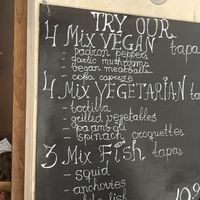 TRY OUR
4 Mix VEGAN tapa
- padron peppers
- garlic mushrooms
- vegan meatballs
- coka caprese
4 Mix VEGETARIAN ta
- tortilla
- grilled vegetables
- pa amboli
- spinach croquettes
3 Mix Fish tapas
- squid
- anchovies